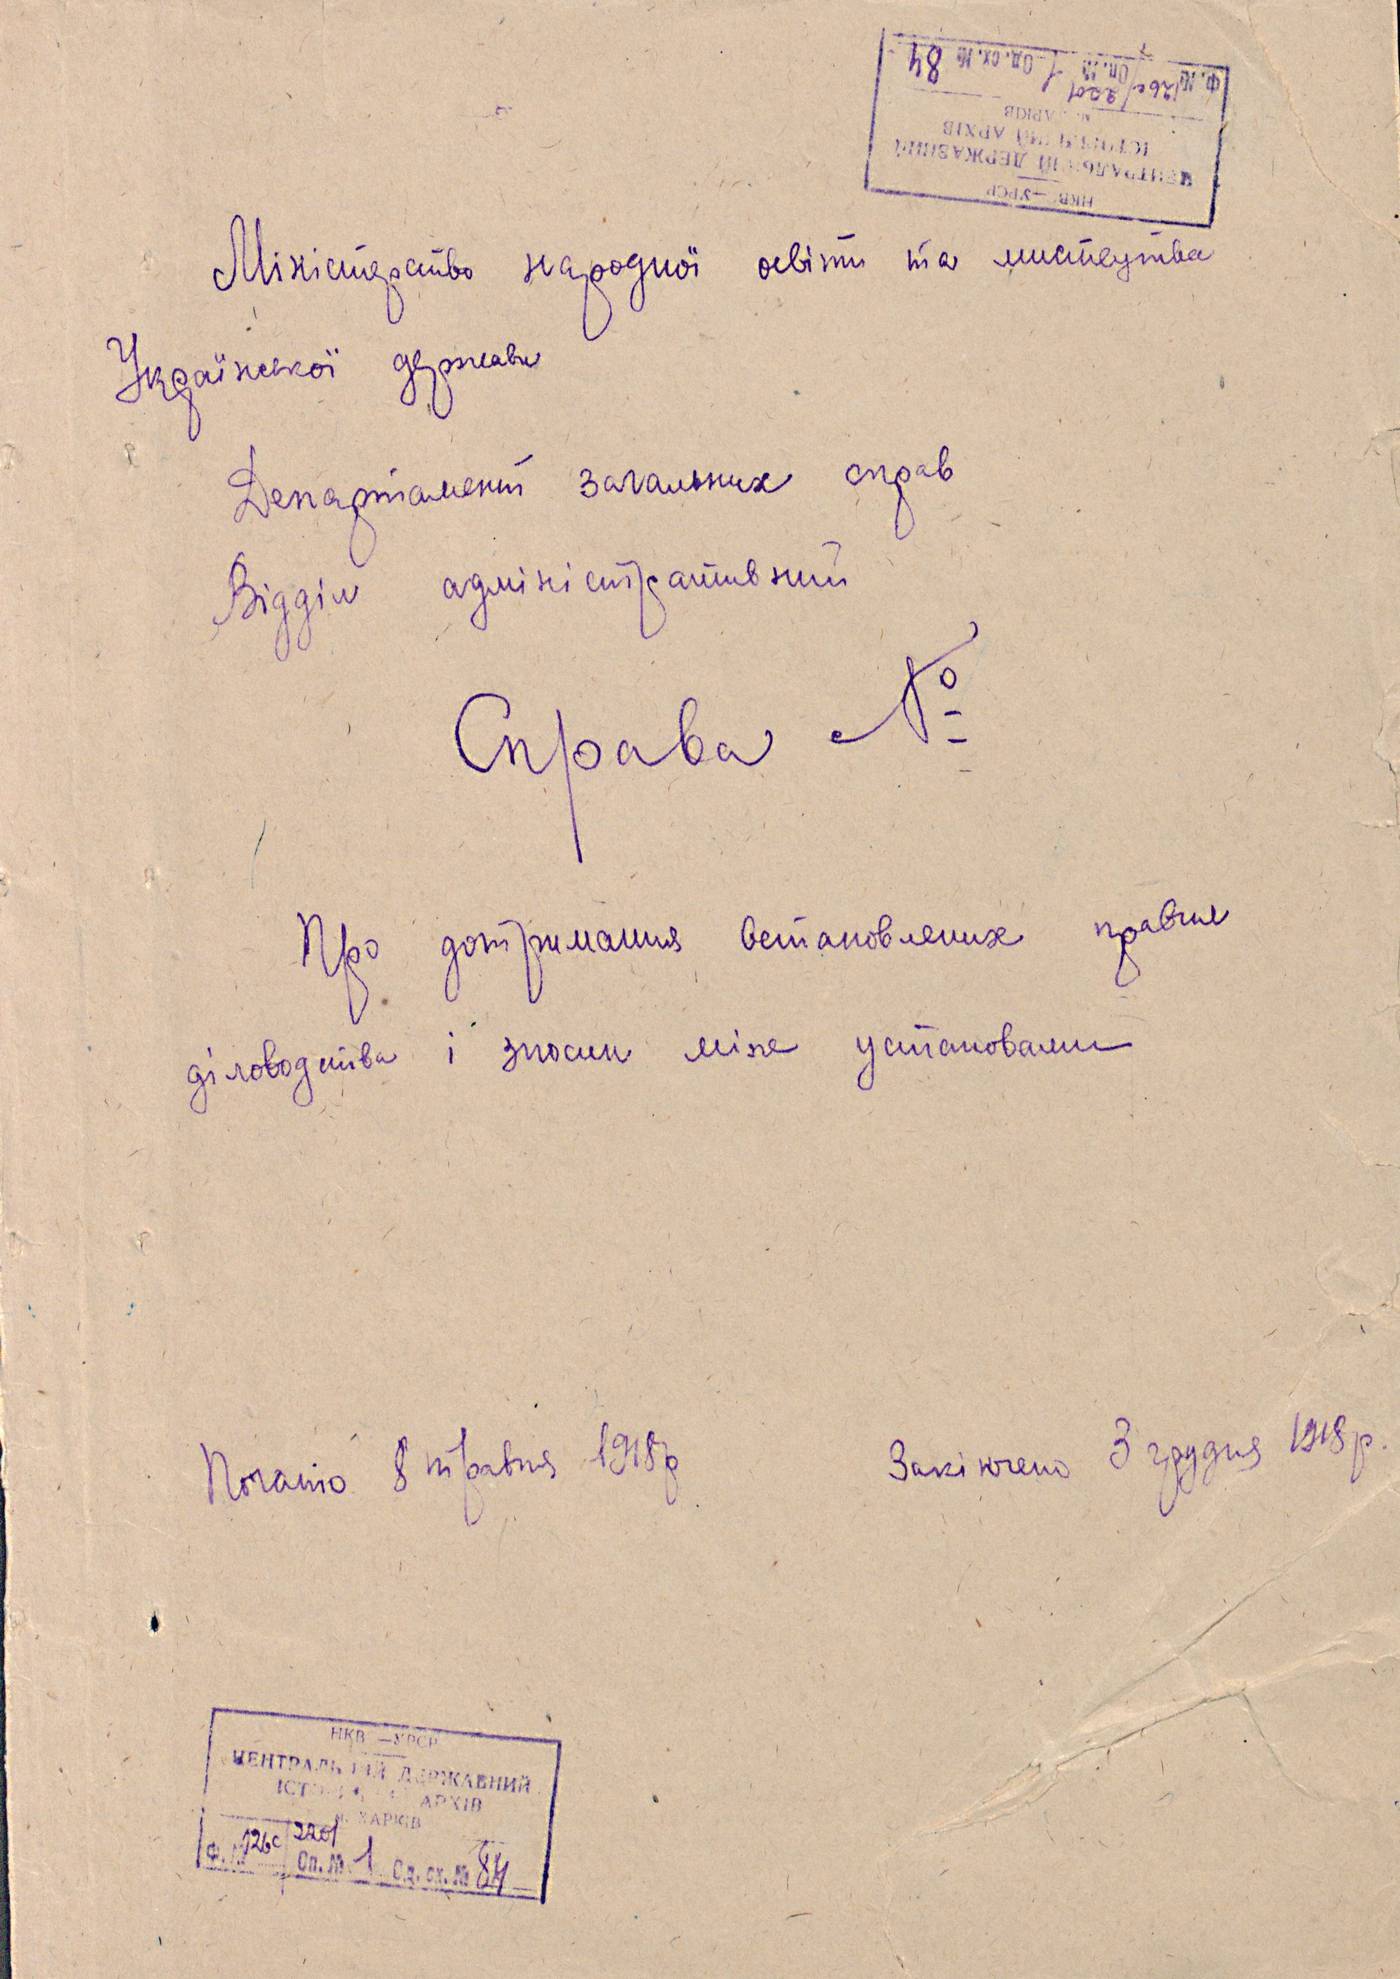 НКВ – УРСР
ЦЕНТРАЛЬНИЙ ДЕРЖАВНИЙ
ІСТОРИЧНИЙ АРХІВ
м. ХАРКІВ
Ф. № 126с/2201 Оп. № 1 Од. сх. № 84
Міністерство народної освіти та мистецтва
Української держави
Департамент загальних справ
Відділ адміністративний
Справа №
Про дотримання встановлених правил
діловодства і зносин між установами
Почато 8 травня 1918р
Закінчено 3 грудня 1918р.
НКВ – УРСР
ЦЕНТРАЛЬНИЙ ДЕРЖАВНИЙ
ІСТОРИЧНИЙ АРХІВ
м. ХАРКІВ
Ф. № 126с 2201 Оп. № 1 Од. сх. № 84